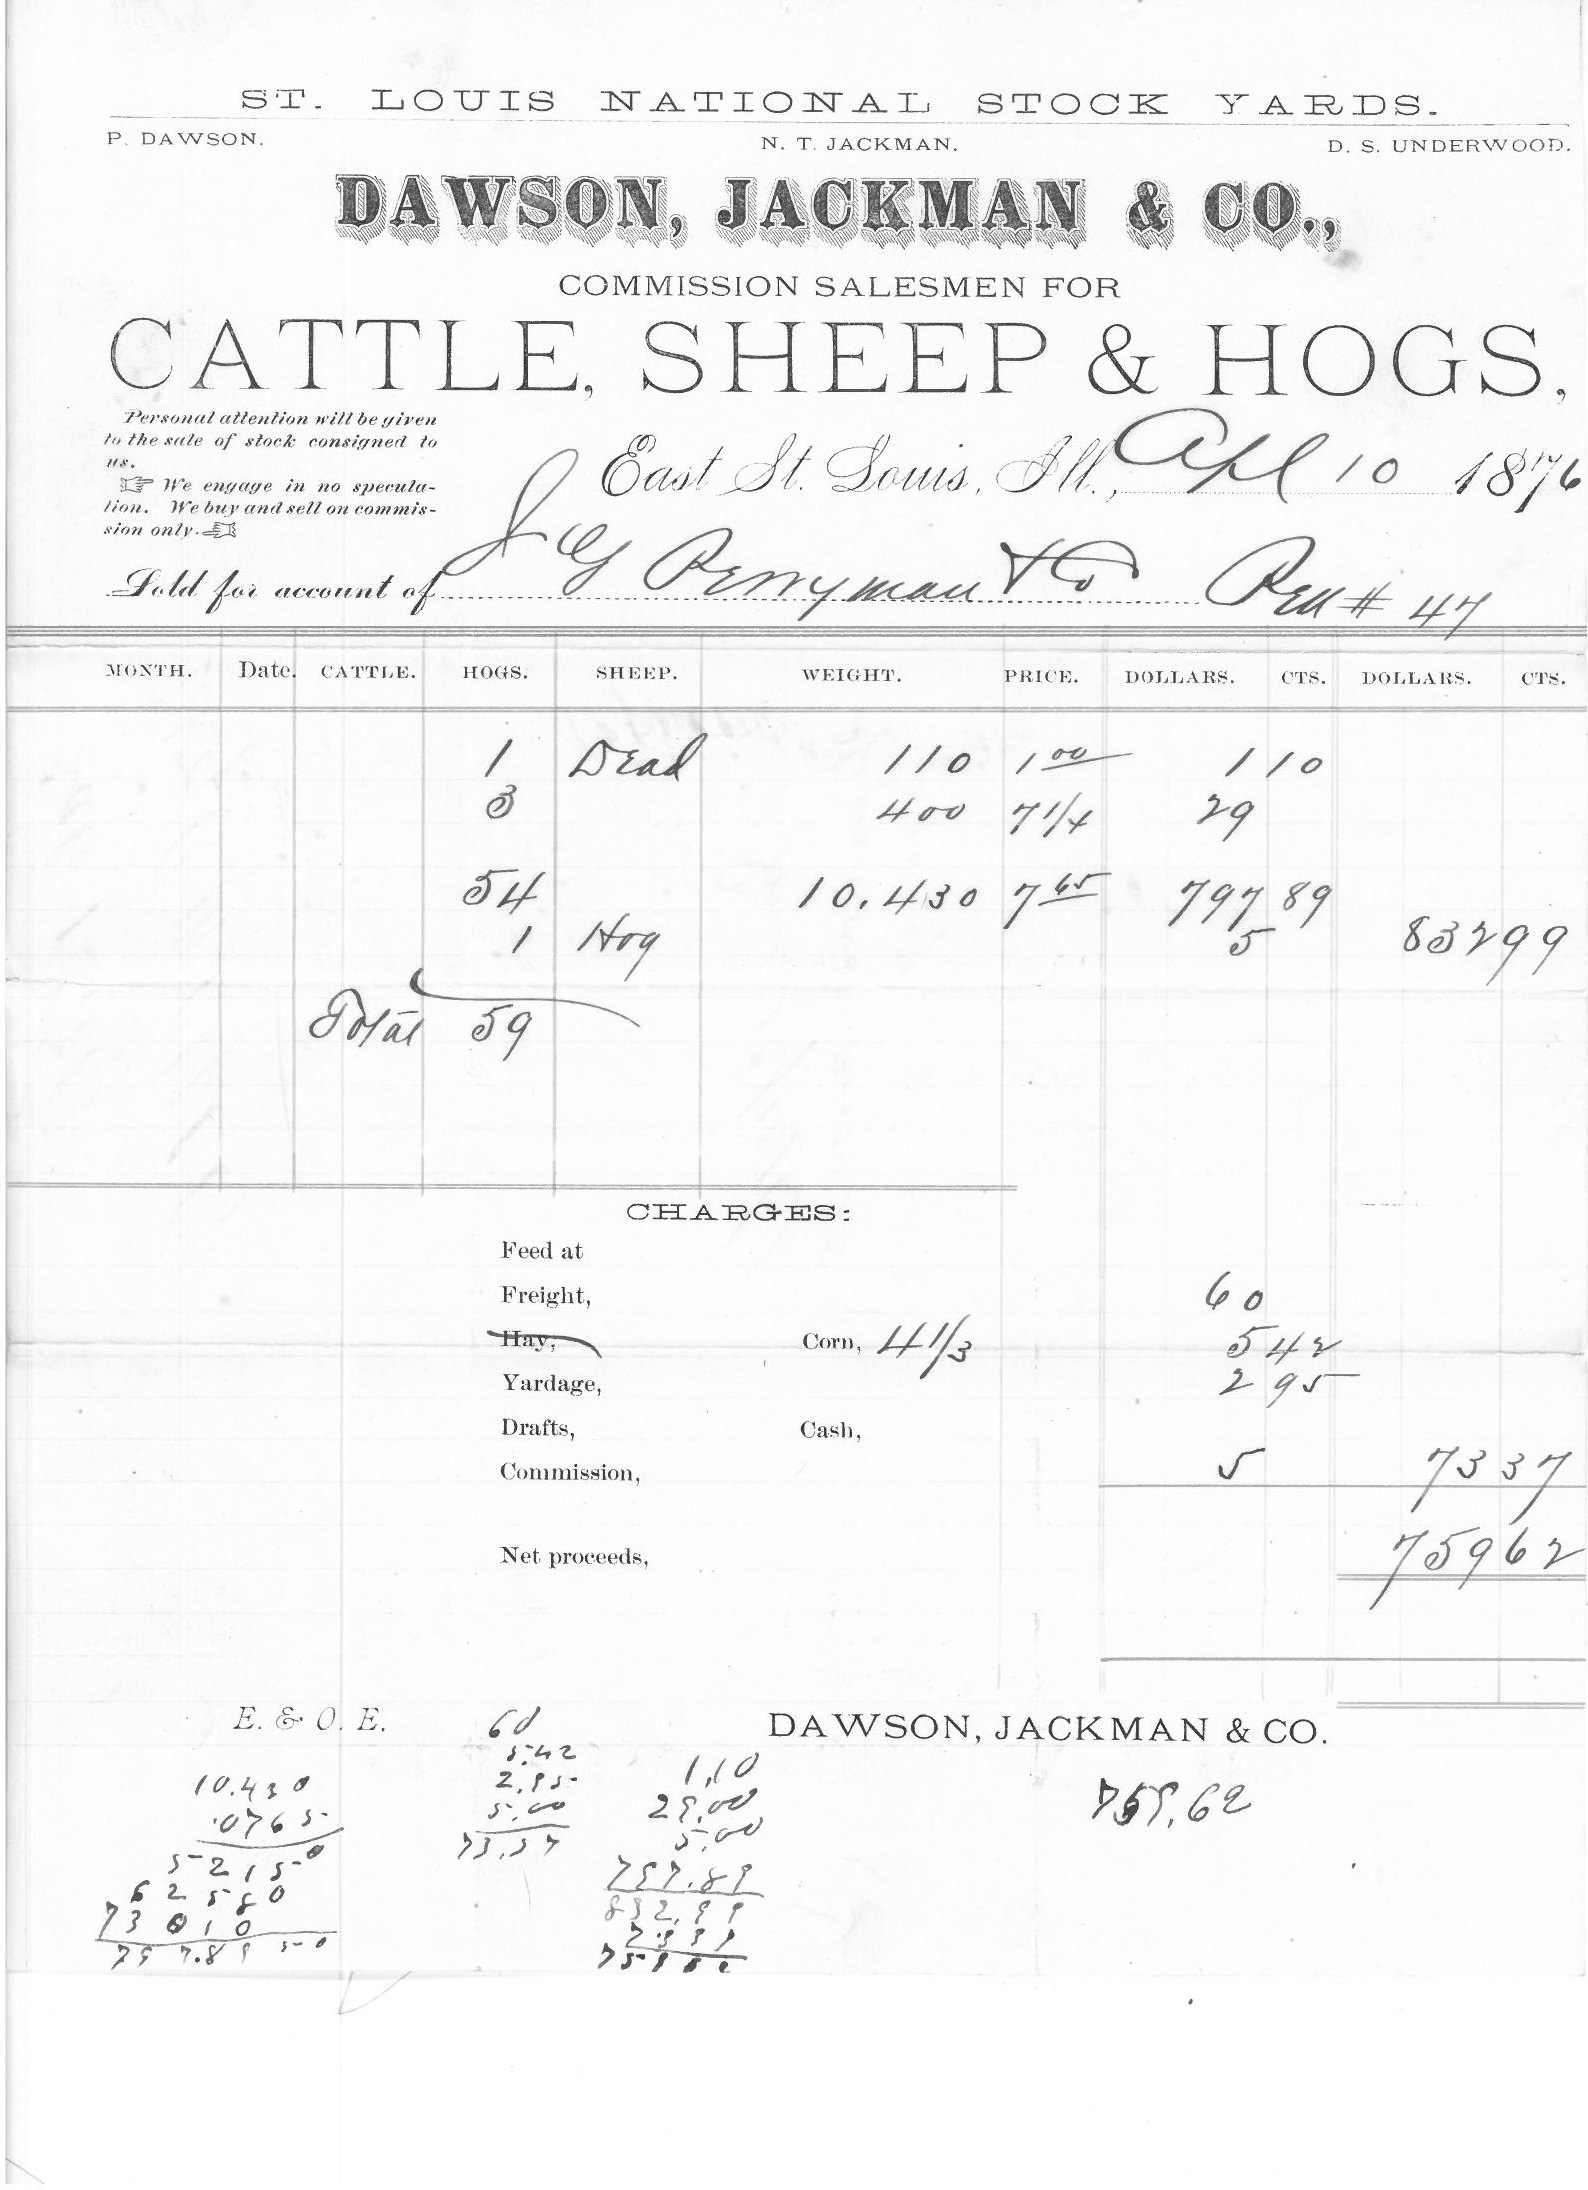 ST. LOUIS NATIONAL STOCK YARDS.
P. DAWSON. N. T. JACKMAN. D. S. UNDERWOOD.
DAWSON, JACKMAN & CO.,
COMMISSION SALESMEN FOR
CATTLE, SHEEP & HOGS,
Personal attention will be given
to the sale of stock consigned to
us.
We engage in no specula-
tion. We buy and sell on commis-
sion only.
East St. Louis, Ill., Apl 10 1876
Sold for account of J G Perryman & Co Pen # 47
MONTH. Date. CATTLE. HOGS. SHEEP. WEIGHT. PRICE. DOLLARS. CTS. DOLLARS. CTS.
1 Dead 110 1 00 1 10
3 400 7 1/4 29
54 10.430 7 65 797 89
1 Hog 5 832 99
Total 59
CHARGES:
Feed at
Freight, 60
Hay, Corn, 4 1/3 5 42
Yardage, 2 95
Drafts, Cash,
Commission, 5 73 37
Net proceeds, 759 62
E. & O. E. DAWSON, JACKMAN & CO.
759.62
10.430
.0765
52150
62580
73010
797.8950
60
5.42
2.95
5.00
73.37
1.10
29.00
5.00
797.89
832.99